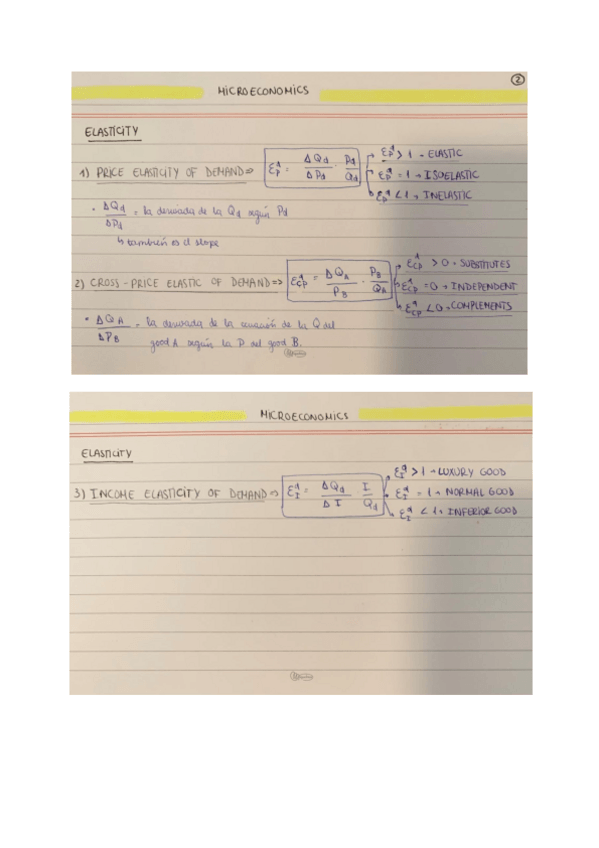 2
MICROECONOMICS
ELASTICITY
1) PRICE ELASTICITY OF DEMAND => εᵈp = ΔQd / ΔPd · Pd / Qd
εᵈp > 1 → ELASTIC
εᵈp = 1 → ISOELASTIC
εᵈp < 1 → INELASTIC
• ΔQd / ΔPd = la derivada de la Qd según Pd
↳ también es el slope
2) CROSS-PRICE ELASTIC OF DEMAND => εᵈcp = ΔQA / PB · PB / QA
εᵈcp > 0 → SUBSTITUTES
εᵈcp = 0 → INDEPENDENT
εᵈcp < 0 → COMPLEMENTS
• ΔQA / ΔPB = la derivada de la ecuación de la Q del
good A según la P del good B.
MICROECONOMICS
ELASTICITY
3) INCOME ELASTICITY OF DEMAND => εᵈI = ΔQd / ΔI I / Qd
εᵈI > 1 → LUXURY GOOD
εᵈI = 1 → NORMAL GOOD
εᵈI < 1 → INFERIOR GOOD